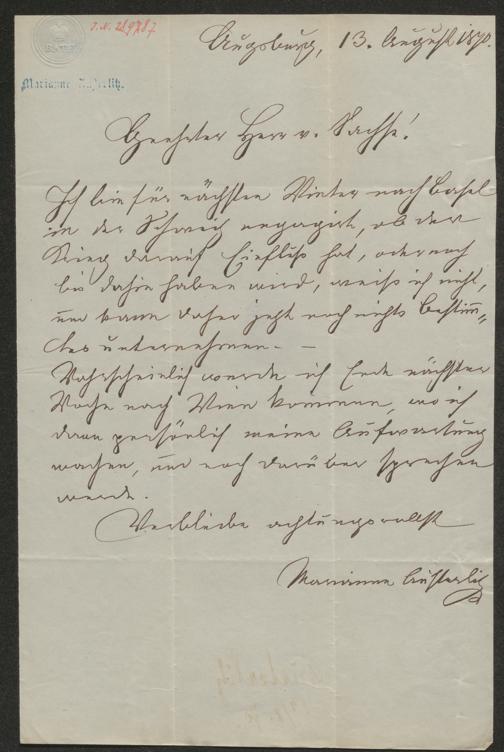 J.N. 219787
Marianne Austerlitz.
Augsburg, 13. August 1870.
Geehrter Herr v. Sachse!
Ich bin für nächsten Winter nach Basel
in der Schweiz engagirt, ob der
Krieg darauf Einfluß hat, oder noch
bis dahin haben wird, weiß ich nicht,
und kann daher jetzt noch nichts bestimm„
tes unternehmen. —
Wahrscheinlich werde ich Ende nächster
Woche nach Wien kommen, wo ich
dann persönlich meine Aufwartung
machen, und noch darüber sprechen
werde.
Verbleibe achtungsvollst
Marianne Austerlitz